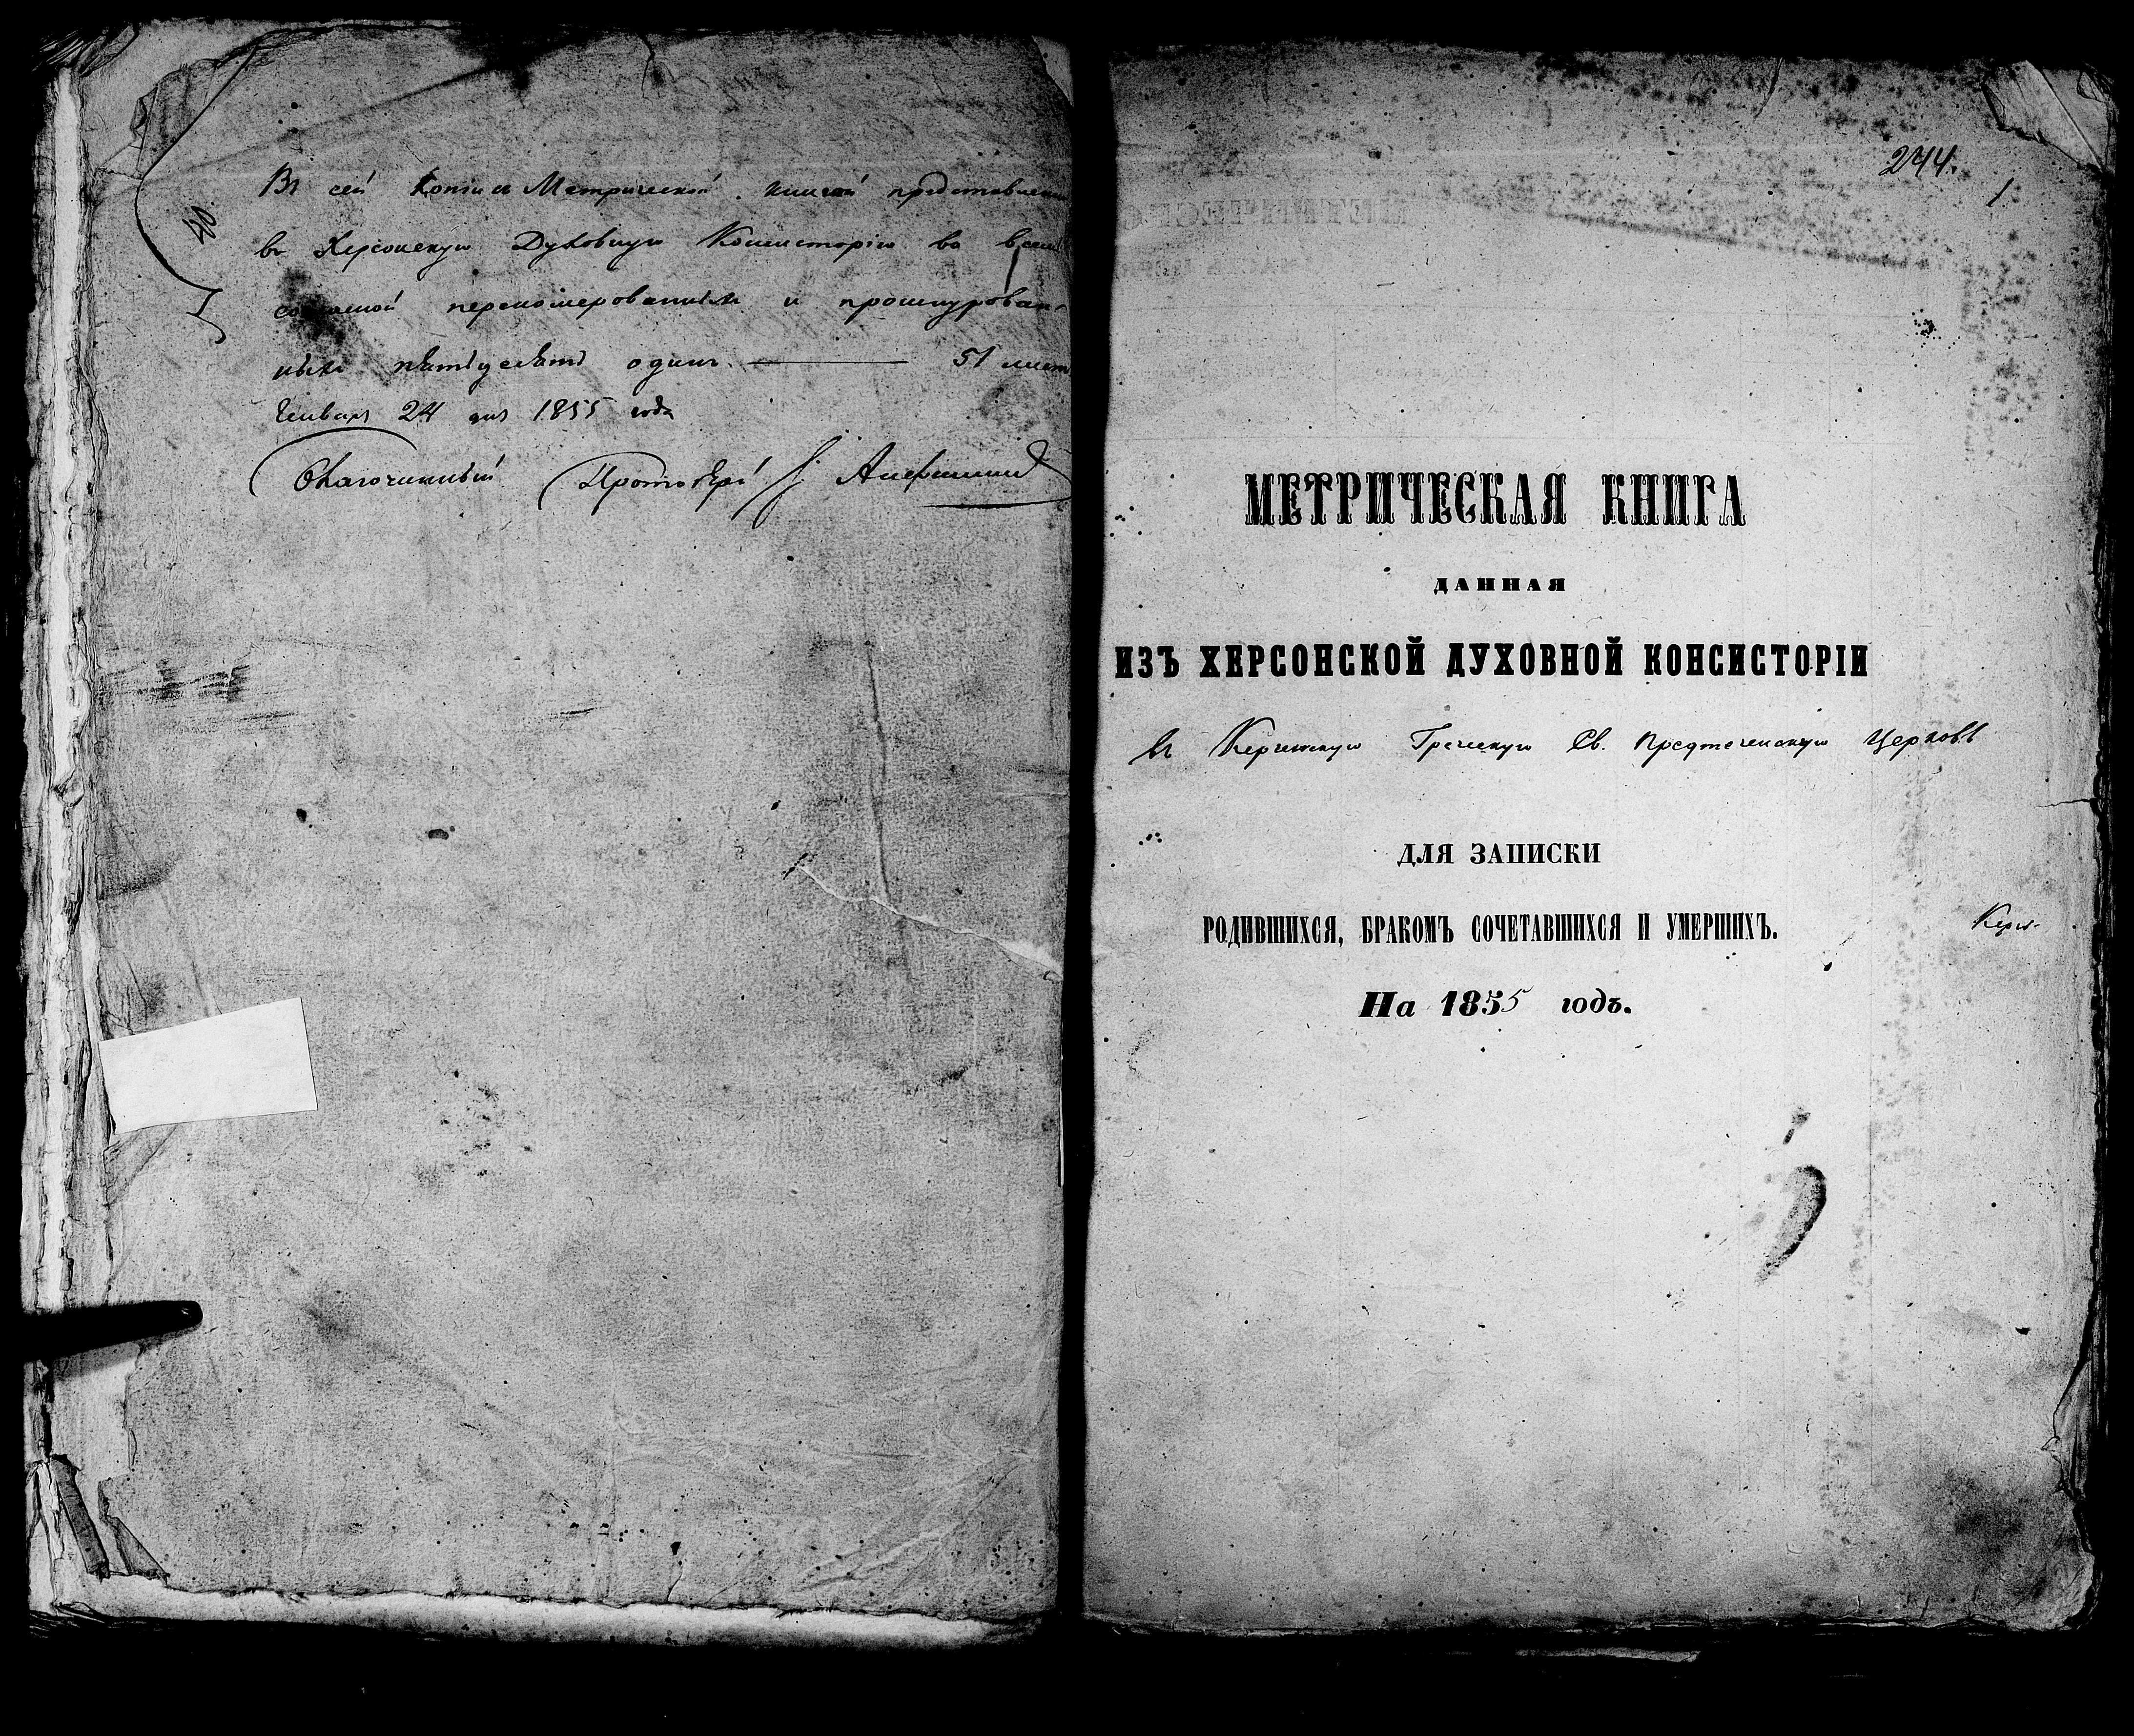 Въ сей Копіи съ Метрической книгой представлен
въ Херсонскую Духовную Консисторію во всемъ
переномерованныхъ и прошнурован-
ныхъ пятьдесятъ одинъ — 51 лист
Генваря 24 дня 1855 года
Благочинный Протоіерей
244.
1
МЕТРИЧЕСКАЯ КНИГА
ДАННАЯ
ИЗЪ ХЕРСОНСКОЙ ДУХОВНОЙ КОНСИСТОРІИ
въ Керченскую Греческую Св. Предтеченскую Церковь
ДЛЯ ЗАПИСКИ
РОДИВШИХСЯ, БРАКОМЪ СОЧЕТАВШИХСЯ И УМЕРШИХЪ.
Керч-
На 1855 годъ.